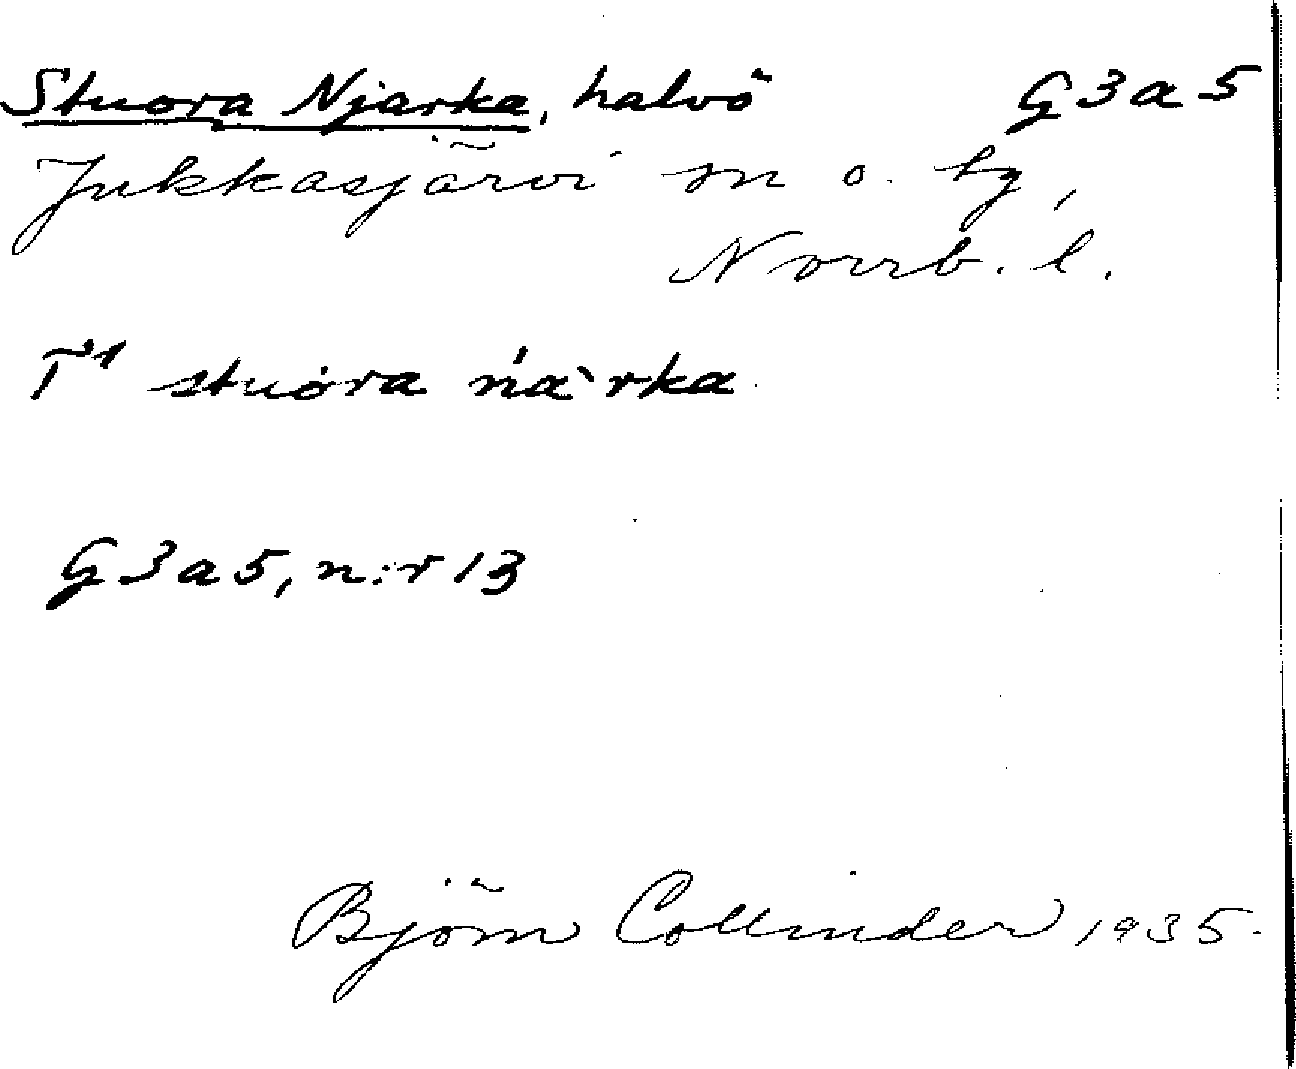 Stuora Njarka, halvö G3a5
Jukkasjärvi sn o. tg,
Norrb. l.
T¹ stuȯra ńàrka
G3a5, n:r 13
Björn Collinder 1935.